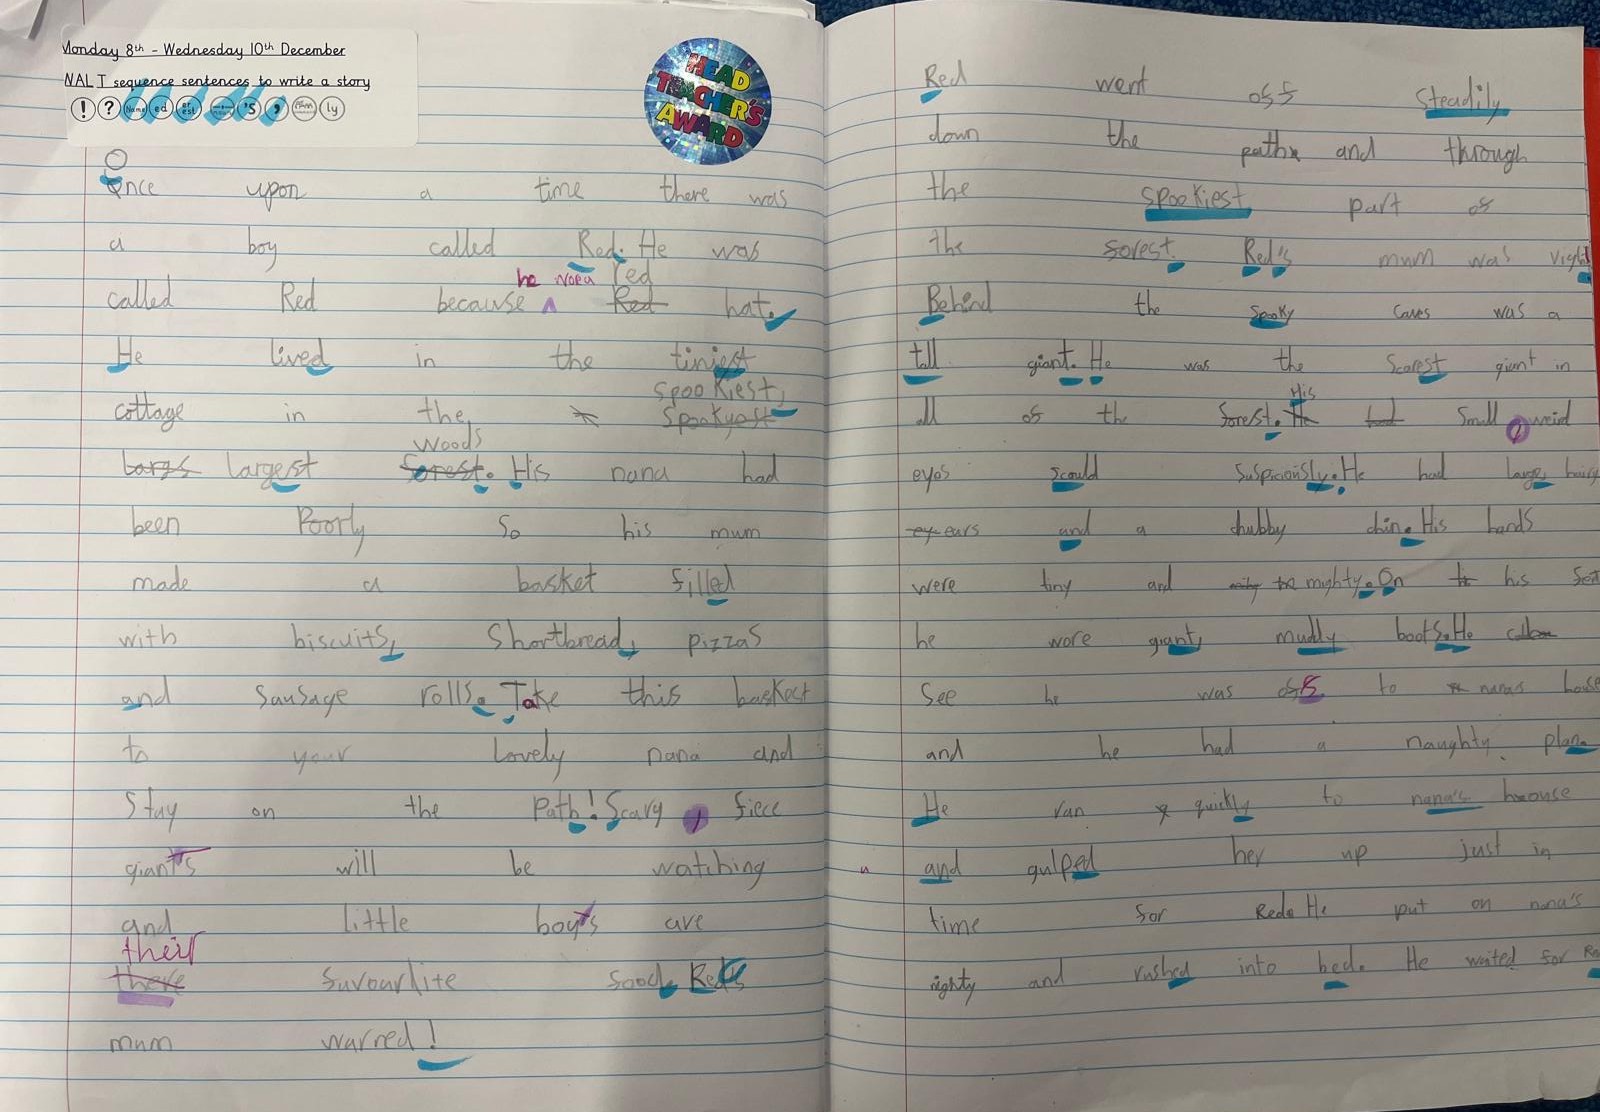 Monday 8th - Wednesday 10th December
NALT sequence sentences to write a story
! ? Name ed er est 's , ly
HEAD TEACHER'S AWARD
Once upon a time there was
a boy called Red. He was
he wora red
called Red because ^ Red hat.
He lived in the tiniest
spookiest,
cottage in the spookyest
woods
largest forest. His nana had
been Poorly so his mum
made a basket filled
with biscuits, shortbread, pizzas
and sausage rolls. Take this baskest
to your lovely nana and
stay on the path! Scary, fiece
giants will be watching
and little boys are
their
there favourlite food. Red's
mum warred!
Red went off steadily
down the path and through
the spookiest part of
the forest. Red's mum was right
Behind the spooky caves was a
tall giant. He was the scarest giant in
His
all of the forest. He had small, weird
eyes scould suspiciously. He had large, hairy
ey ears and a chubby chin. His hands
were tiny and mighty. On his feet
he wore giant, muddy boots. He
see he was off to nanas house
and he had a naughty plan.
He ran quickly to nana's house
and gulped her up just in
time for Red. He put on nana's
nighty and rushed into bed. He waited for